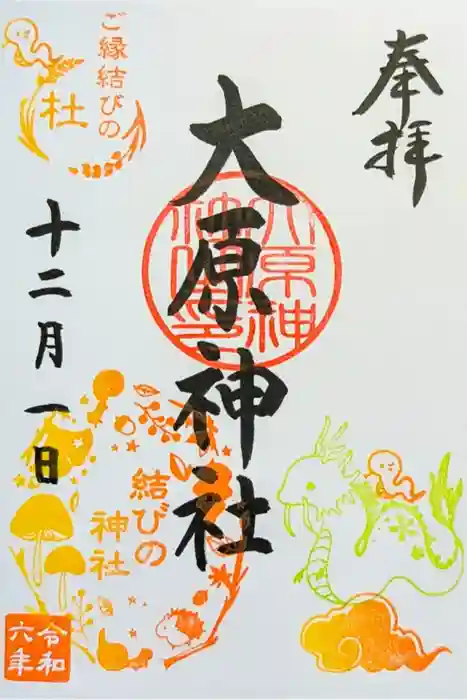 奉拝
大原神社
大原神社印
ご縁結びの
杜
十二月一日
結びの
神社
令和
六年